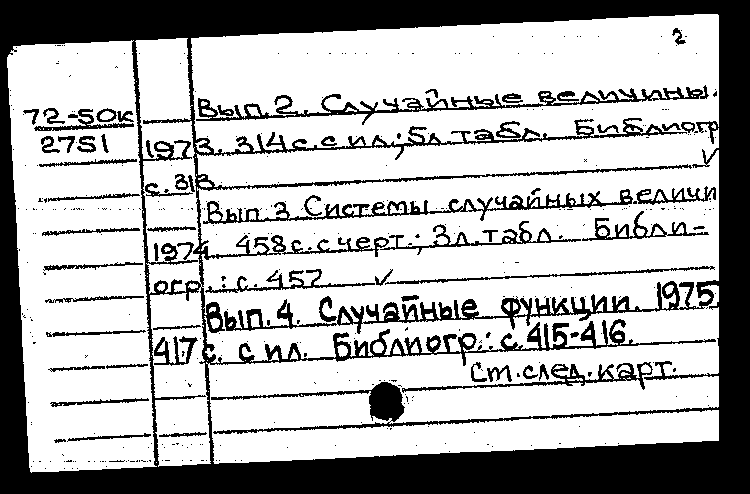 2
Вып. 2. Случайные величины.
72-50к
2751
1973. 314 с. с ил.; 5л. табл. Библиогр
с. 313.
Вып. 3 Системы случайных величи
1974. 458 с. с черт.; 3л. табл. Библи-
огр.: с. 457.
Вып. 4. Случайные функции. 1975
417 с. с ил. Библиогр.: с. 415-416.
См. след. карт.